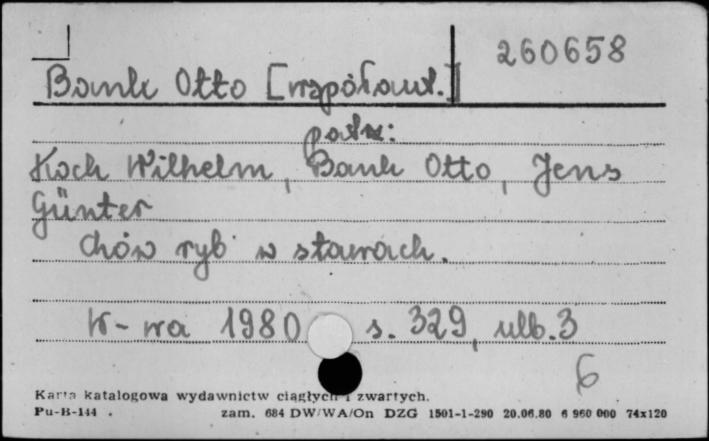 260658
Bank Otto [współaut.]
patrz:
Koch Wilhelm, Bank Otto, Jens
Günter
Chów ryb w stawach.
W-wa 1980 s. 329, nlb. 3
6
Karta katalogowa wydawnictw ciągłych i zwartych.
Pu-B-144 . zam. 684 DW/WA/On DZG 1501-1-290 20.06.80 6 960 000 74x120